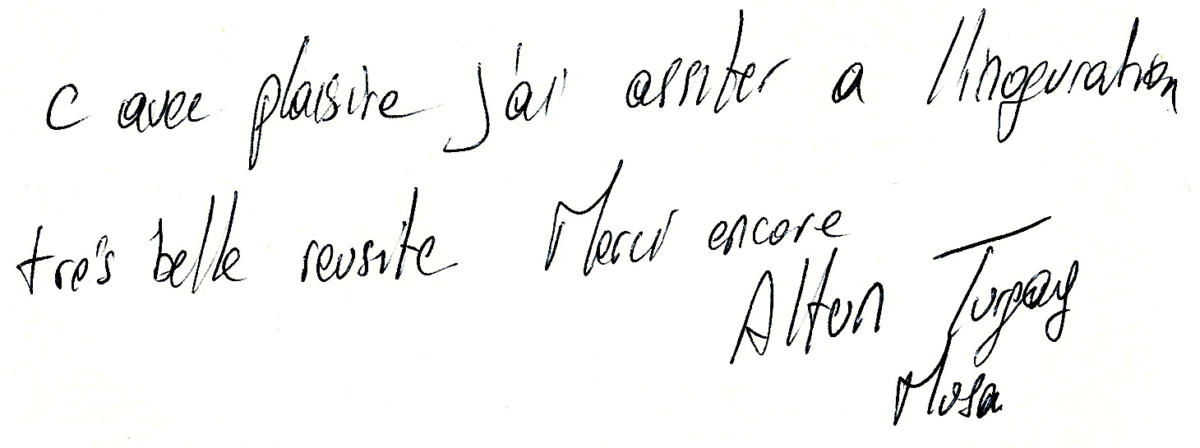 c avec plaisire j'ai assiter a l'ingeuration
très belle reusite Merci encore
Altun Turgay
Musa